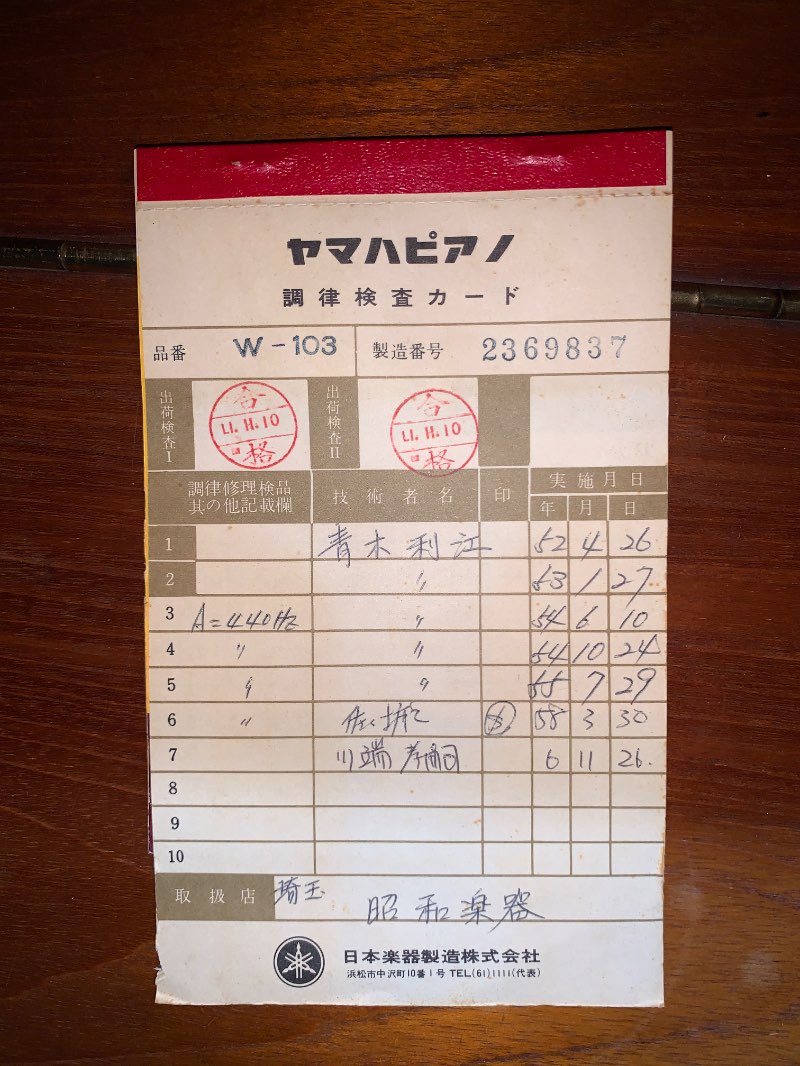 ヤマハピアノ
調律検査カード
品番 W-103 製造番号 2369837
出荷検査I 合格 L1.11.10 出荷検査II 合格 L1.11.10
調律修理検品其の他記載欄 技術者名 印 実施月日
年 月 日
1 青木利江 52 4 26
2 〃 53 1 27
3 A=440Hz 〃 54 6 10
4 〃 〃 54 10 24
5 〃 〃 55 7 29
6 〃 58 3 30
7 川端 6 11 26.
8
9
10
取扱店 埼玉 昭和楽器
日本楽器製造株式会社
浜松市中沢町10番1号 TEL(61)1111(代表)